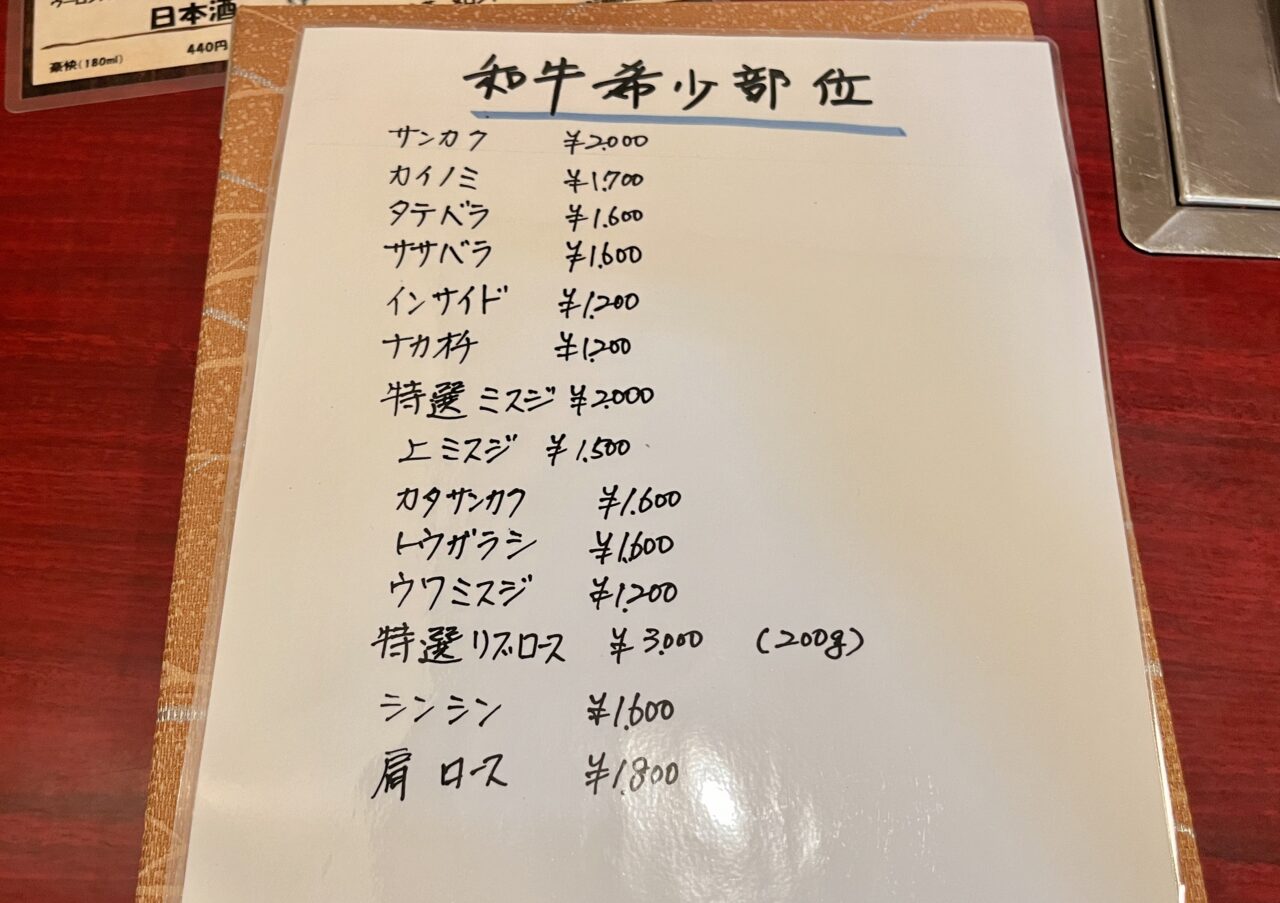 日本酒
440円
豪快(180ml)
和牛希少部位
サンカク ¥2.000
カイノミ ¥1.700
タテバラ ¥1.600
ササバラ ¥1.600
インサイド ¥1.200
ナカオチ ¥1.200
特選ミスジ ¥2.000
上ミスジ ¥1.500
カタサンカク ¥1.600
トウガラシ ¥1.600
ウワミスジ ¥1.200
特選リブロース ¥3.000 (200g)
シンシン ¥1.600
肩ロース ¥1.800